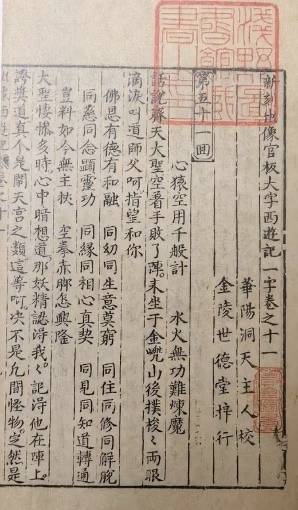 新刻出像官板大字西遊記 字卷之十一
華陽洞天主人校
金陵世德堂梓行
第五十一回
心猿空用千般計 水火無功難煉魔
話說齊天大聖空着手敗了陣來坐于金𡶴山後撲梭〻兩眼
滴淚叫道師父呵指望和你
佛恩有德有和融 同幼同生意莫窮 同住同修同解脫
同慈同念顯靈功 同緣同相心真契 同見同知道轉通
豈料如今無主杖 空拳赤脚怎興隆
大聖悽慘多時心中暗想道那妖精認得我〻記得他在陣上
誇奬道真个是鬧天宮之類這等呵决不是凡間怪物定然是